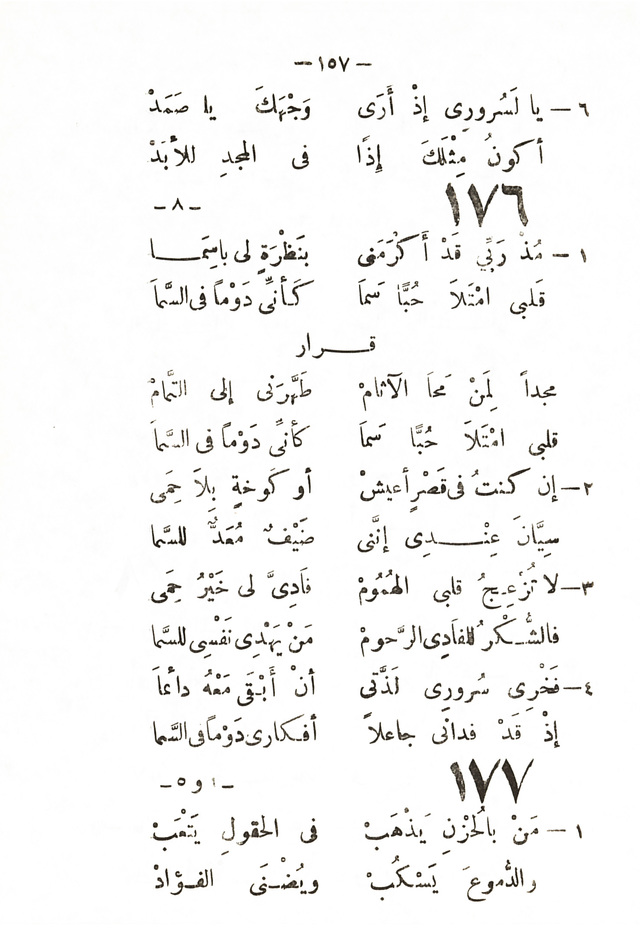 — ١٥٧ —
٦ — يا لَسُرورِى إذْ أَرَى وَجْهَكَ يا صَمَدْ
أكونُ مِثْلَكَ إِذًا فى المجدِ للأبَدْ
١٧٦ — ٨ —
١ — مُذْ رَبِّي قَدْ أَكْرَمَنى بنَظْرَةٍ لى باسِمَا
قَلبى امْتَلاَ حُبًّا سَمَا كَأنِّى دَوْماً فى السَّمَا
قرار
مجداً لِمَنْ مَحاَ الآثامْ طَهَّرَنى إلى التَّمامْ
قلبى امْتَلاَ حُبًّا سَمَا كأنِّى دَوْماً فى السَّمَا
٢ — إن كنتُ فى قَصْرٍ أعيشْ أو كَوخةٍ بِلاَ حِمَى
سِيَّانَ عِنْدِى إنَّنى ضَيْفٌ مُعَدٌّ للسَّما
٣ — لا تُزْعِجُ قلبى الهُمُومْ فَادِىَّ لى خَيْرُ حِمَى
فالشُّكْرُ للفَادِى الرَّحومْ مَنْ يَهْدِى نَفْسِى للسَّما
٤ — فَخْرِى سُرورِى لَذَّتى أنْ أَبْقَى مَعْهُ دائماَ
إذْ قَدْ فدانى جاعلاً أفكارى دَوْماً فى السَّما
١٧٧ — ١ و ٥ —
١ — مَنْ بالحُزْنِ يَذْهَبْ فى الحقولِ يَتْعَبْ
والدُّموعَ يَسْكُبْ ويُضْنَى الفؤادْ